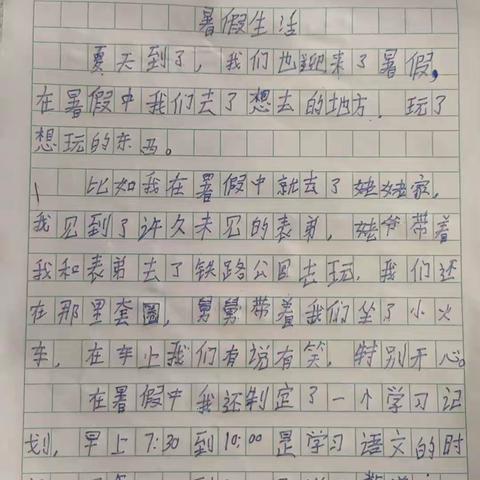 暑假生活
夏天到了，我们也迎来了暑假，
在暑假中我们去了想去的地方．玩了
想玩的东西。
比如我在暑假中就去了姥姥家，
我见到了许久未见的表弟，姥爷带着
我和表弟去了铁路公园去玩．我们还
在那里套圈，舅舅带着我们坐了小火
车，在车上我们有说有笑，特别开心。
在暑假中我还制定了一个学习记
划，早上7:30到10:00是学习语文的时